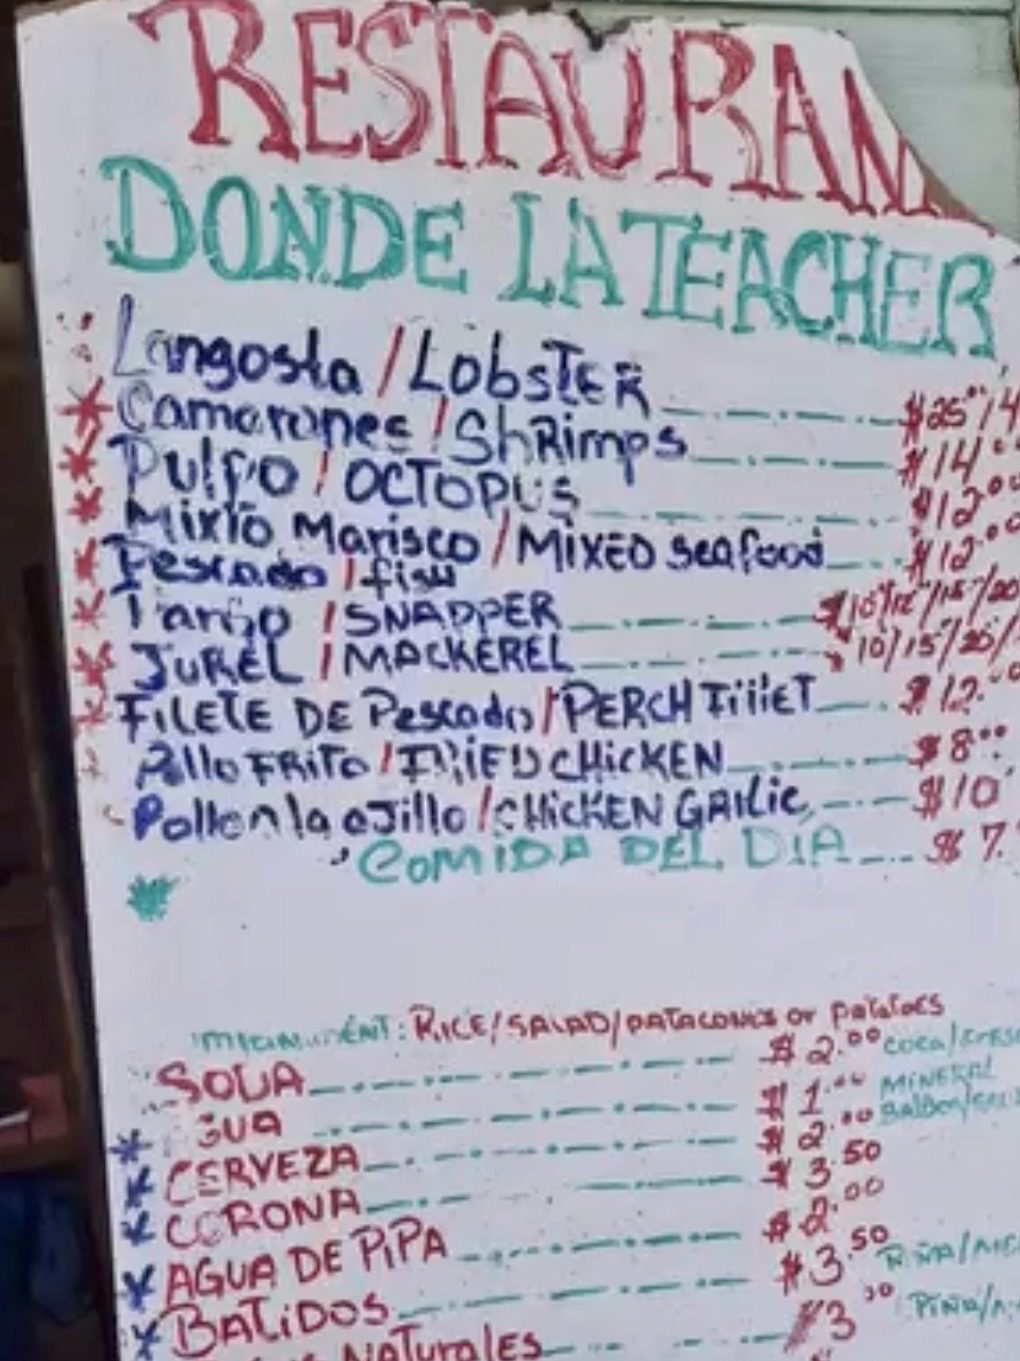 RESTAURAN
DONDE LA TEACHER
Langosta / LobsTER $25°° / 4
Camarones / ShRimps $14°°
Pulpo / OCTOPUS $12.°°
Mixto Marisco / MiXED seafood $12.°°
Pescado / fish
Pargo / SNAPPER $10/12/15/20
JUREL / MACKEREL 10/15/20/
FILETE DE Pescado / PERCH Fillet $12.°°
Pollo FRITO / FRiED CHicKEN $8°°
Pollo en la ajillo / CHICKEN GARLic $10
COMIDA DEL DIA $7.
RICE/SALAD/PATACONES or Patatoes
SODA $2.°° COCA/
GUA $1.°° MINERAL
CERVEZA $2.°° BALBOA/
CORONA $3.50
AGUA DE PiPA $2.00
BATIDOS $3.50 PiÑA/
NATURALES $3 PiÑA/